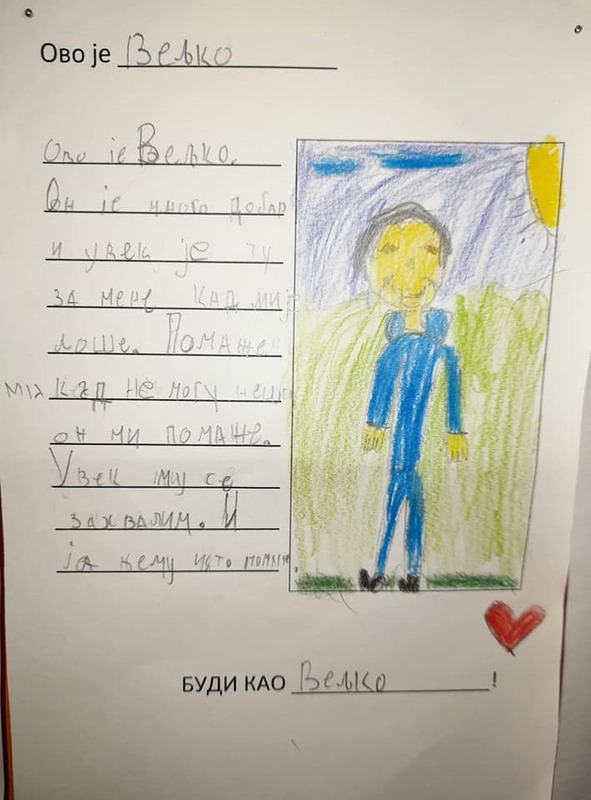 Ово је Вељко
Ово је Вељко.
Он је много добар
и увек је ту
за мене кад мије
лоше. Помаже
ми кад не могу нешто
он ми помаже.
Увек мују се
захвалим. И
ја њему исто
БУДИ КАО Вељко !